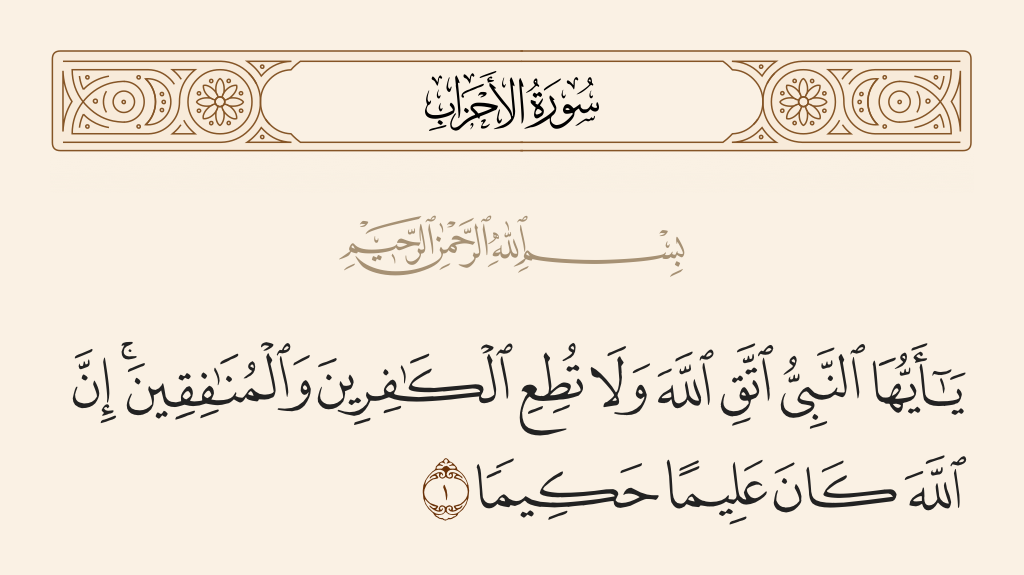 سُورَةُ الأَحْزَابِ
بِسْمِ ٱللَّهِ ٱلرَّحْمَٰنِ ٱلرَّحِيمِ
يَـٰٓأَيُّهَا ٱلنَّبِىُّ ٱتَّقِ ٱللَّهَ وَلَا تُطِعِ ٱلْكَـٰفِرِينَ وَٱلْمُنَـٰفِقِينَ ۚ إِنَّ
ٱللَّهَ كَانَ عَلِيمًا حَكِيمًا ١